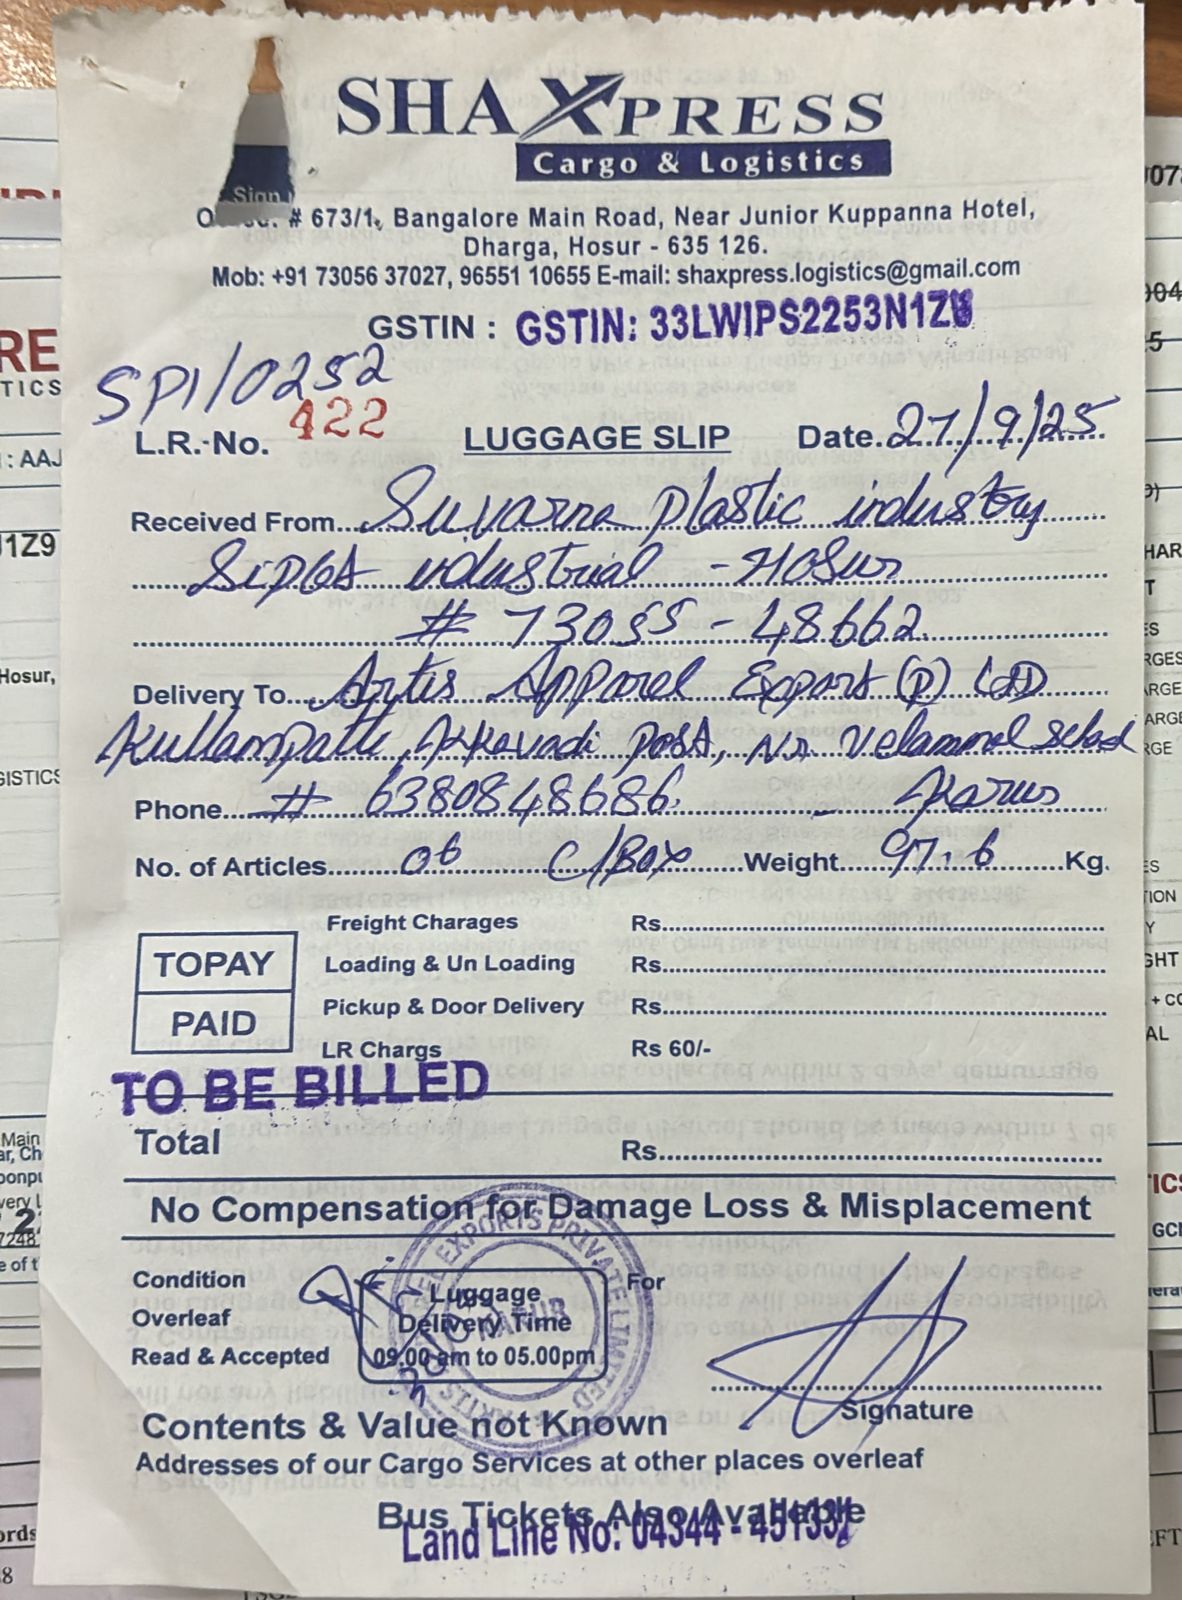 SHAXPRESS
Cargo & Logistics
Sign
# 673/1, Bangalore Main Road, Near Junior Kuppanna Hotel,
Dharga, Hosur - 635 126.
Mob: +91 73056 37027, 96551 10655 E-mail: shaxpress.logistics@gmail.com
GSTIN : GSTIN: 33LWIPS2253N1Z
SPI/0252
L.R.-No. 422 LUGGAGE SLIP Date. 27/9/25
Received From Suvarna plastic industry
industrial - Hosur
# 73055 - 48662
Delivery To Artis Apparel Export (P) Ltd
Post, Nr. Velammal School
Phone # 6380848686
No. of Articles 06 C/Box Weight 97.6 Kg.
Freight Charages Rs.
TOPAY Loading & Un Loading Rs.
Pickup & Door Delivery Rs.
PAID
LR Chargs Rs 60/-
TO BE BILLED
Total Rs.
No Compensation for Damage Loss & Misplacement
Condition Luggage For
Overleaf Delivery Time
Read & Accepted 09.00 am to 05.00pm
EXPORTS PRIVATE LIMITED
Signature
Contents & Value not Known
Addresses of our Cargo Services at other places overleaf
Bus Tickets Also Available
Land Line No: 04344 -